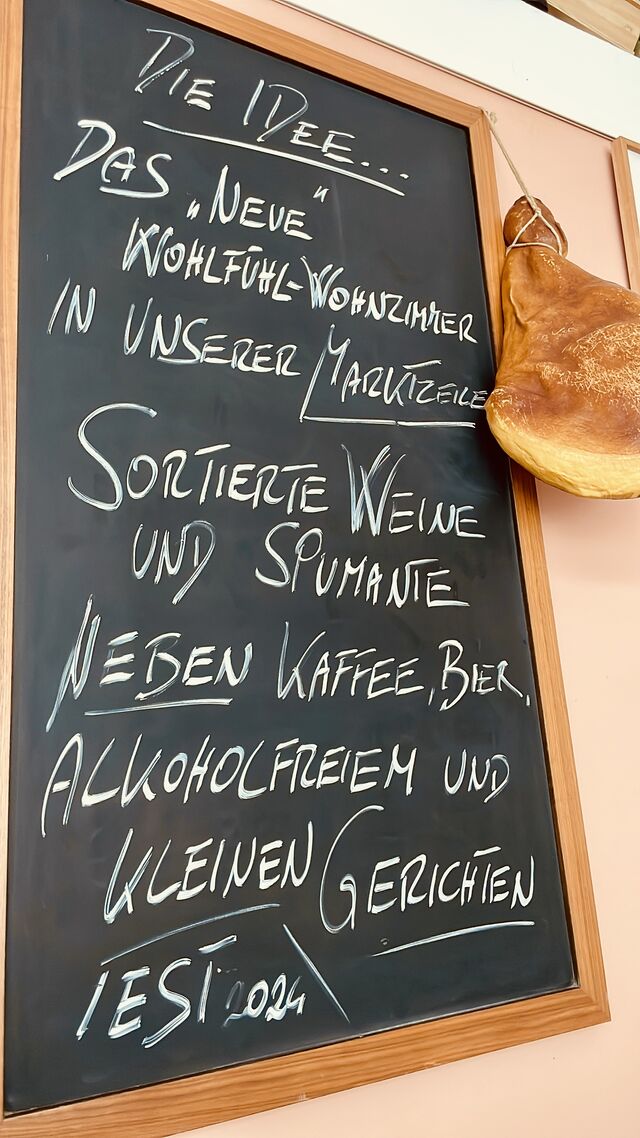 DIE IDEE...
DAS „NEUE"
WOHLFÜHL-WOHNZIMMER
IN UNSERER MARKTZEILE
SORTIERTE WEINE
UND SPUMANTE
NEBEN KAFFEE, BIER,
ALKOHOLFREIEM UND
KLEINEN GERICHTEN
TEST 2024